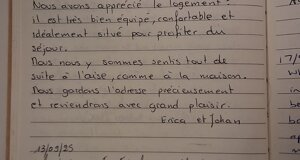 Nous avons apprécié le logement :
il est très bien équipé, confortable et
idéalement situé pour profiter du
séjour.
Nous nous y sommes sentis tout de
suite à l'aise, comme à la maison.
Nous gardons l'adresse précieusement
et reviendrons avec grand plaisir.
Erica et Johan
13/09/25
17/